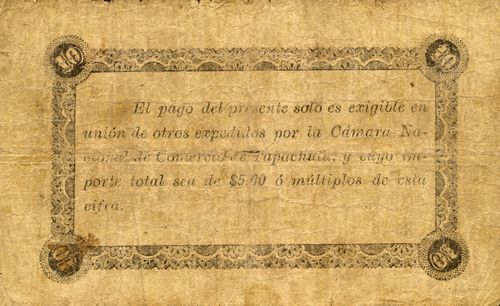 10 10
El pago del presente solo es exigible en
unión de otros expedidos por la Cámara Na-
cional de Comercio de Tapachula, y cuyo im-
porte total sea de $5.00 ó múltiplos de esta
cifra.
10 10